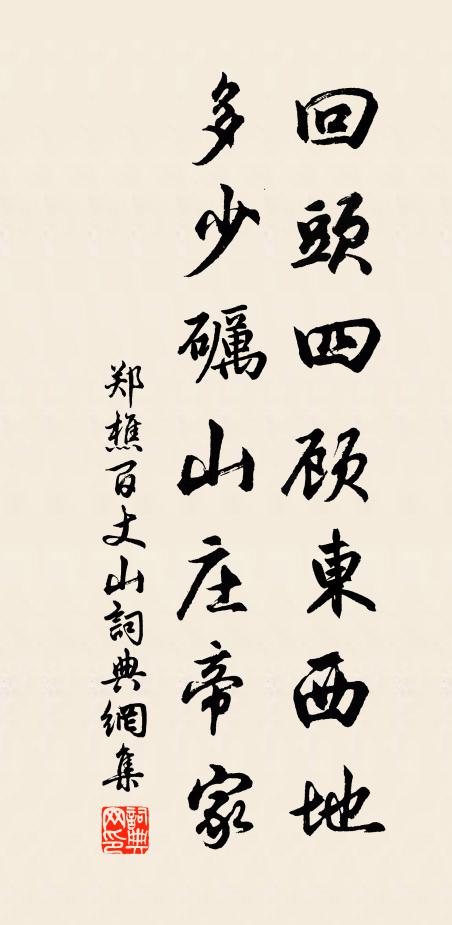 回頭四顾東西地
多少礪山庄帝家
郑樵百丈山詞典網集
詞典网印